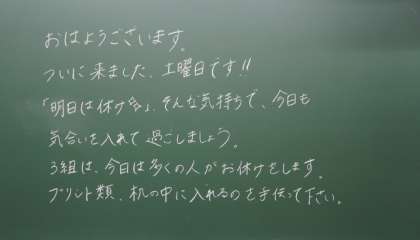 おはようございます。
ついに来ました、土曜日です!!
「明日は休け多」、そんな気持ちで、今日も
気合いを入れて過ごしましょう。
3組は、今日は多くの人がお休けをします。
プリント類、机の中に入れるのを手伝って下さい。